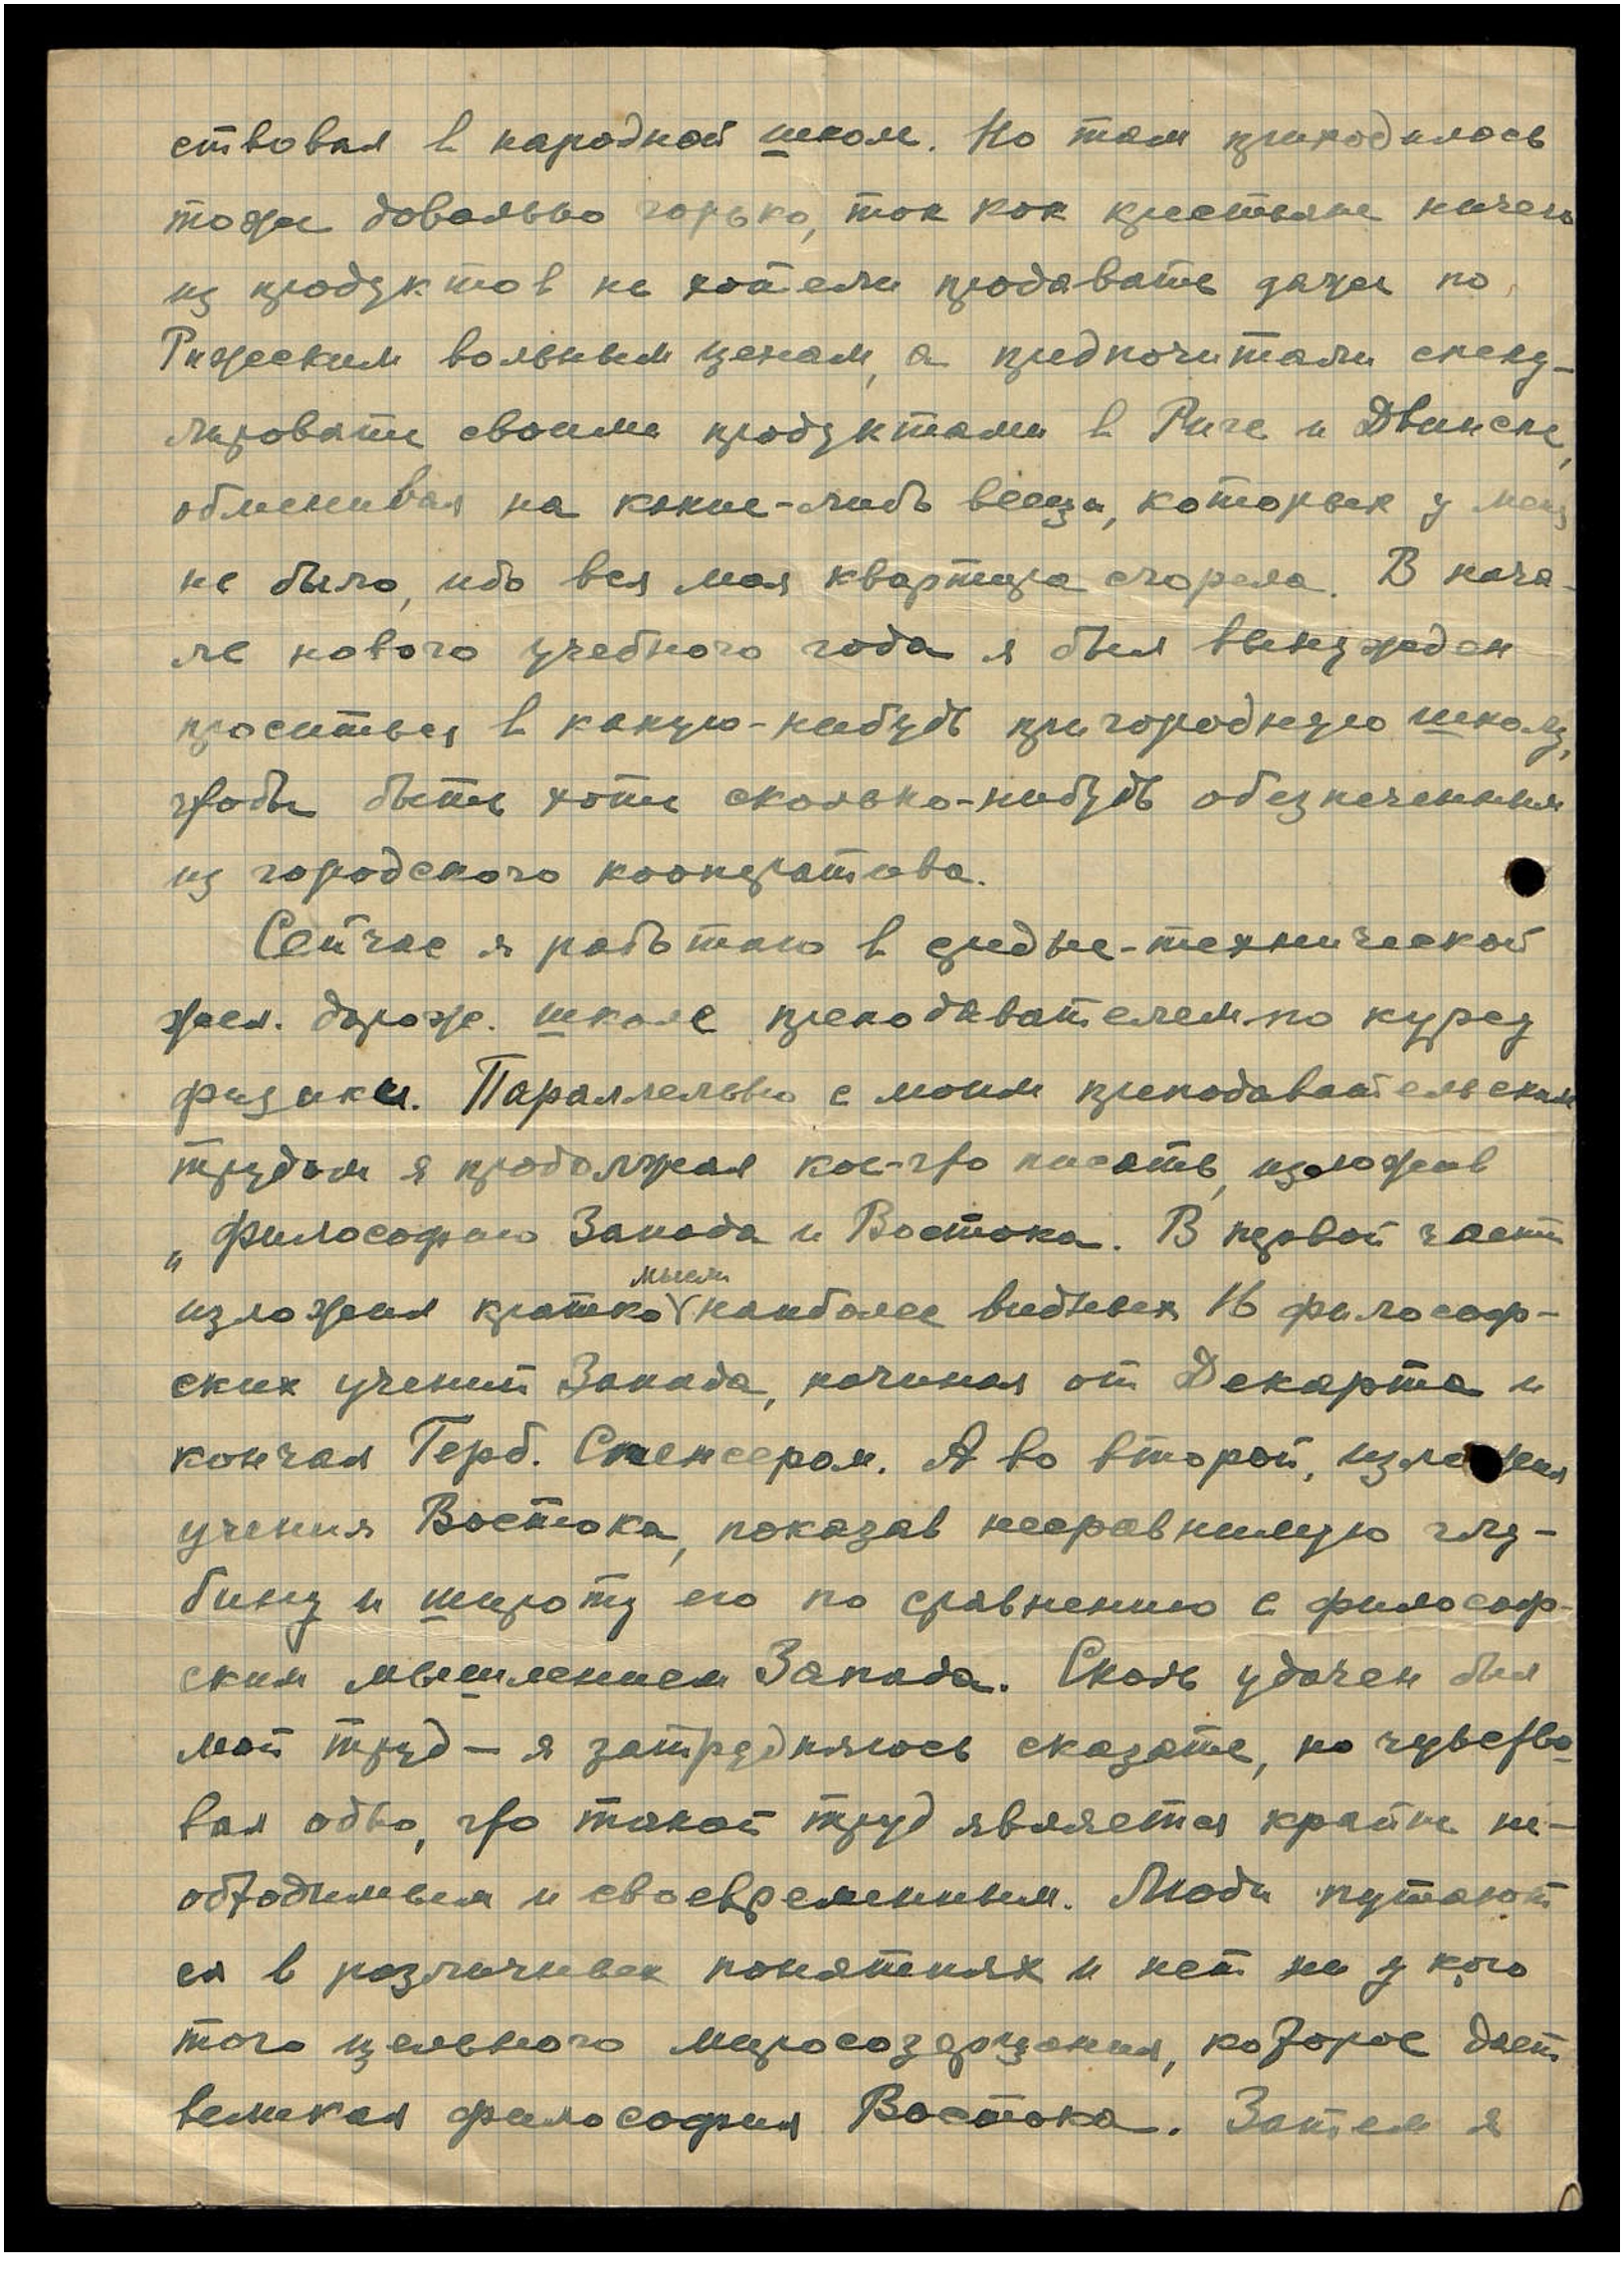 ствовал в народной школе. Но там приходилось
тоже довольно горько, так как крестьяне ничего
из продуктов не хотели продавать даже по
Рижским вольным ценам, а предпочитали спеку-
лировать своими продуктами в Риге и Двинске,
обменивая на какие-либо вещи, которых у меня
не было, ибо вся моя квартира сгорела. В нача-
ле нового учебного года я был вынужден
проситься в какую-нибудь пригородную школу,
чтобы быть хоть сколько-нибудь обезпеченным
из городского кооператива.
Сейчас я работаю в средне-технической
жел. дорож. школе преподавателем по курсу
физики. Параллельно с моим преподавательским
трудом я продолжал кое-что писать, изложив
„Философию Запада и Востока. В первой части
изложил кратко мысли наиболее видных 16 философ-
ских учений Запада, начиная от Декарта и
кончая Герб. Спенсером. А во второй, изложил
учения Востока, показав несравнимую глу-
бину и широту его по сравнению с философ-
ским мышлением Запада. Сколь удачен был
мой труд — я затрудняюсь сказать, но чувство-
вал одно, что такой труд является крайне не-
обходимым и своевременным. Люди путают
ся в различных понятиях и нет ни у кого
того цельного миросозерцания, которое дает
великая философия Востока. Затем я